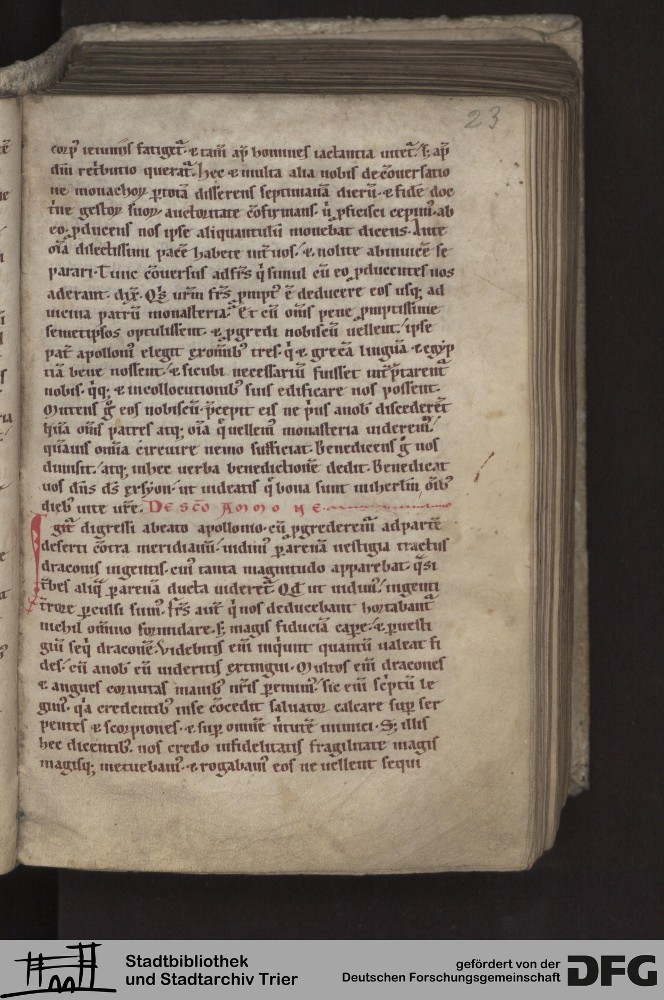 23
corpꝰ ieiuniis fatiget᷑. ⁊ tam̄ ap̄ homines iactantia uitet᷑. ſ; ap̄
dm̄ ret͛butio querat᷑. hec ⁊ multa alia nobis de cōuerſatio
ne monachoꝝ ꝑ totā diſſerens ſeptimanā dierū. ⁊ fide doc
eo ꝓducens nos ipſe aliquantulū monebat dicens. Ante
oīa dilectiſſimi pacē habete int͛ uos. ⁊ nolite abinuicē ſe
parari. Tunc cōuerſus ad fr̄s q̇ ſimul cū eo ꝓducentes nos
aderant. dix̄. Qͥs ur̄m fr̄s ꝓmptꝰ ē deducere eos uſq; ad
uicina patrū monaſteria. Et cū om̄s pene ꝓmptiſſime
ſemetipſos optuliſſent. ⁊ ꝓgredi nobiſcū uellent. ipſe
pat͛ apolloniꝰ elegit ex om̄ibꝰ tres. q̇ ⁊ grecā linguā ⁊ egyp
tiā bene noſſent. ⁊ ſicubi neceſſariū fuiſſet int͛ptarent᷑
nobis. q̇q; ⁊ in collocutionibꝰ ſuis edificare nos poſſent.
Mittens ḡ eos nobiſcū. p̄cepit eis ne pͥus a nob̄ diſcederēt
quā om̄s patres atq; oīa q̄ uellem̄ monaſteria uiderem̄.
quāuis omīa circuire nemo ſufficiat. Benedicens ḡ nos
dimiſit. atq; in hec uerba benedictionē dedit. Benedicat
uos dn̄s ds̄ ex ſyon. ut uideatis q̄ bona ſunt in iherlm̄. om̄ibꝰ
diebꝰ uite ur̄e. De sc̄o Ammone.
Igit᷑ digreſſi a beato apollonio. cū ꝓgrederem̄ ad partē
deſerti cōtra meridianū. uidimꝰ ꝑ arenā ueſtigia tractus
draconis ingentis. cuiꝰ tanta magnitudo apparebat. q̄ſi
t͛bes aliq̄ ꝑ arenā ducta uideret᷑. Qd̄ ut uidimꝰ. ingenti
t͛rore ꝑculſi ſumꝰ. fr̄s aut̄ q̇ nos deducebant hortabant᷑
nichil omnino formidare. ſ; magis fiduciā cape͛. ⁊ ꝑ ueſti
giū ſeq̇ draconē. Videbitis eni᷑ inq̇unt quantū ualeat fi
des. cū a nob̄ eū uideritis extingui. Multos eni᷑ dracones
⁊ angues cornutas manibꝰ nr̄is ꝑemimꝰ. ſic eni᷑ ſc͛ptū le
gimꝰ. q̇a credentibꝰ in ſe cōcedit ſaluator calcare ſuꝑ ſer
pentes ⁊ ſcorpiones. ⁊ ſuꝑ omnē uirtutē inimici. S; illis
hec dicentibꝰ. nos credo infidelitatis fragilitate magis
magisq; metuebamꝰ. ⁊ rogabamꝰ eos ne uellent ſequi
Stadtbibliothek
und Stadtarchiv Trier
gefördert von der
Deutschen Forschungsgemeinschaft
DFG